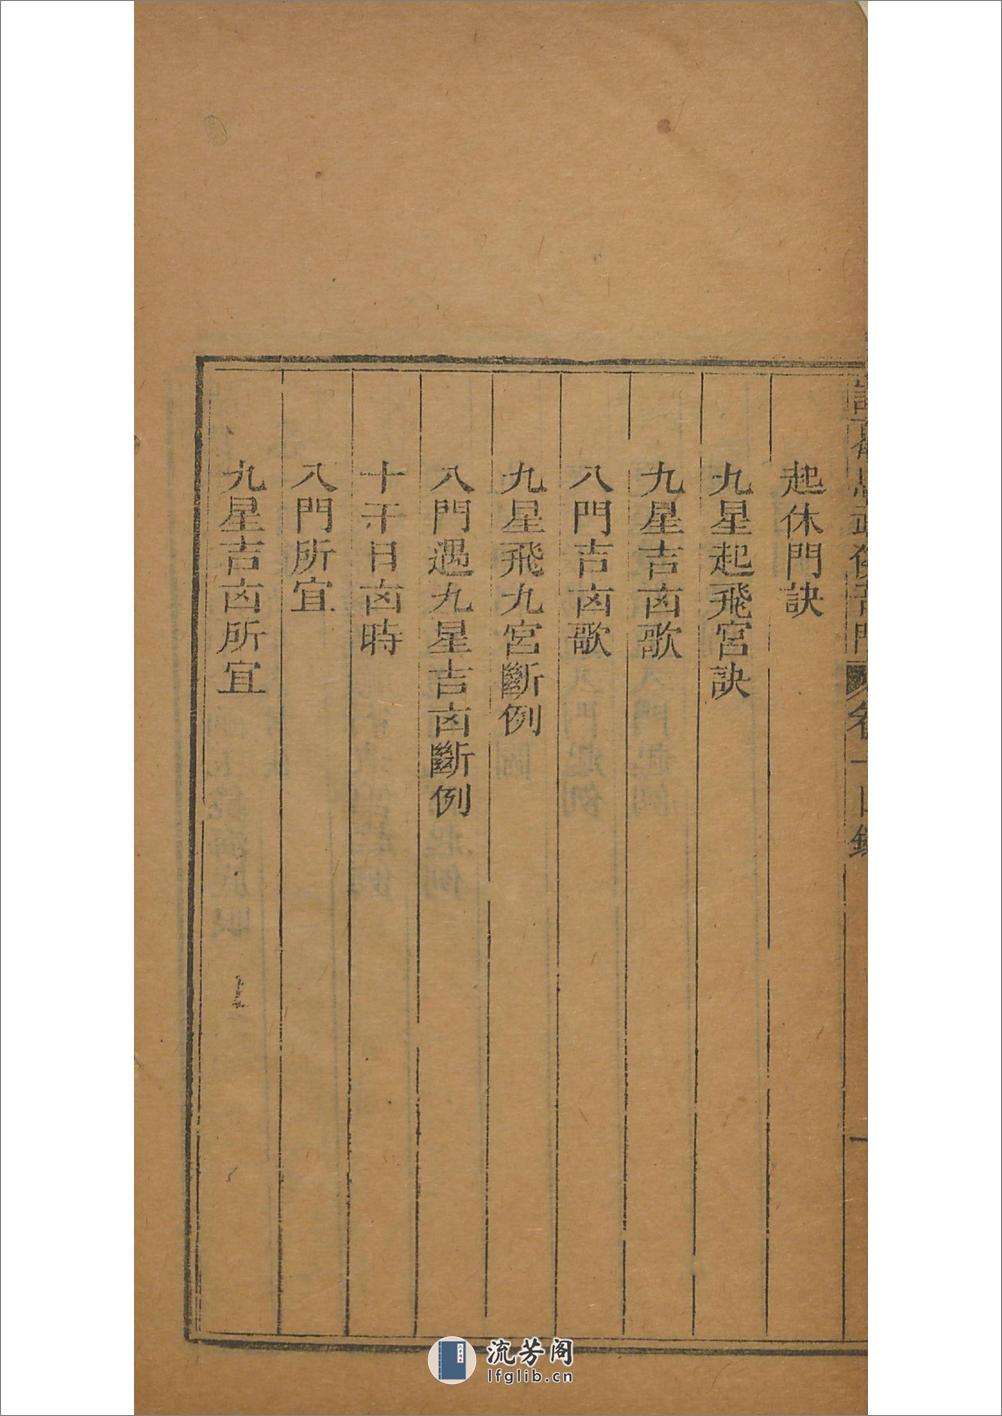 起休門訣
九星起飛宮訣
九星吉凶歌
八門吉凶歌
九星飛九宮斷例
八門遇九星吉凶斷例
十干日凶時
八門所宜
九星吉凶所宜
流芳阁
lfglib.cn